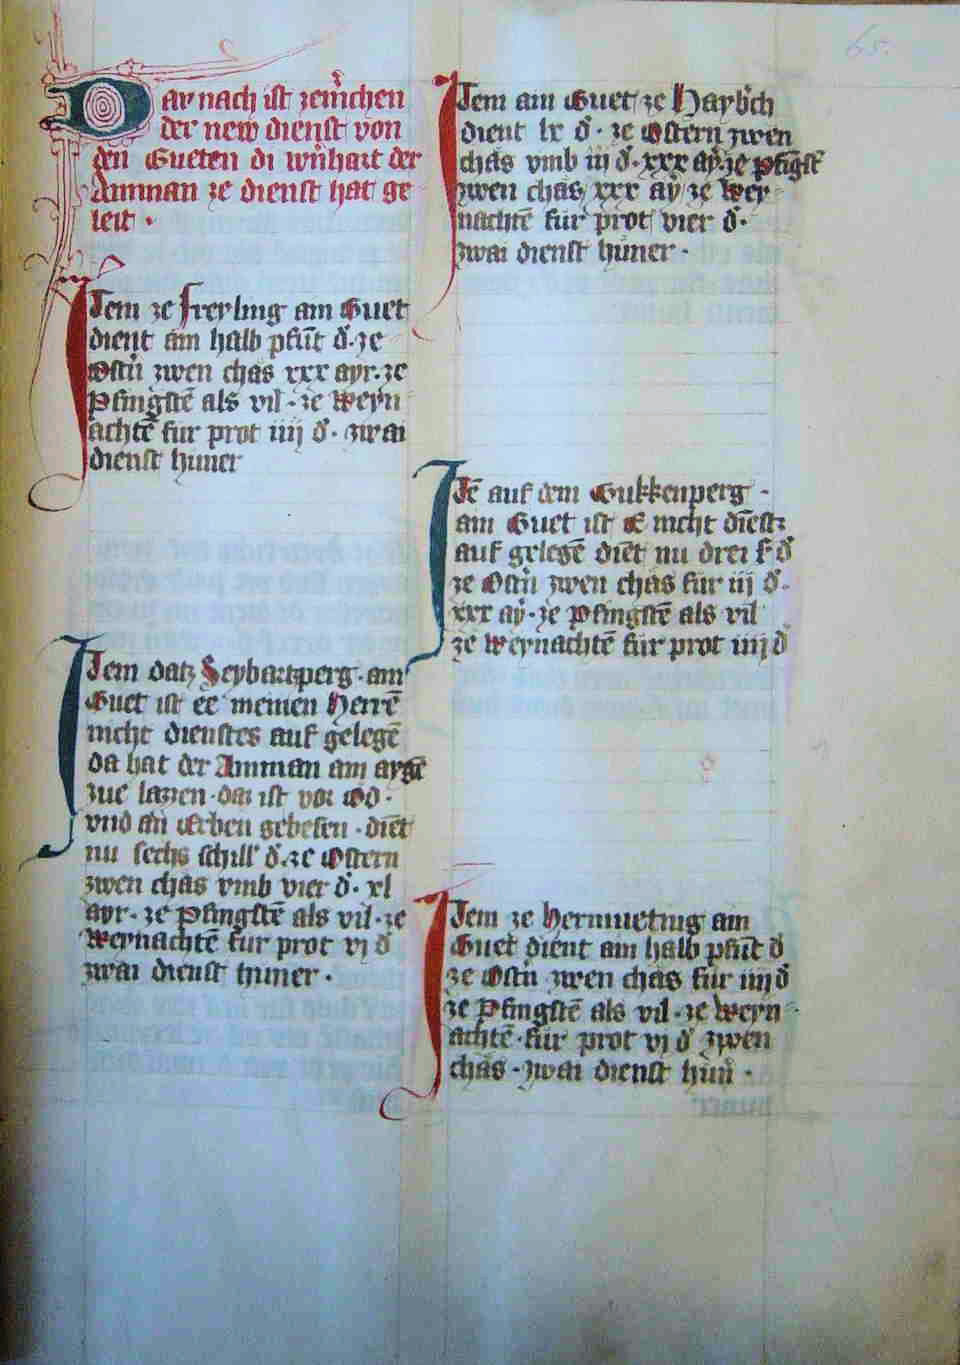 65.
Dar nach ist zem̄chen
der new dienst von
den Gueten di wn̄hart der
Amman ze dienst hat ge
leit ·
Item ze Freyling ain Guet
dient ain halb pfūt đ · ze
Ostn̄ zwen chäs xxx ayr · ze
Pfingstē als vil · ze Weyn
achtē fur prot iiij đ · zwai
dienst hüner
Item datz Seybartzperg · ain
Guet ist ee meinen Herrē
nicht dienstes auf gelegē
da hat der Amman ain aygē
zue lazzen · daz ist vor Öd ·
vnd an Erben gebesen · diēt
nu sechs schill đ · ze Ostern
zwen chäs vmb vier đ · xl
ayr · ze Pfingstē als vil · ze
Weynachtē fur prot vj đ
zwai dienst hüner ·
Item ain Guet ze
dient lx đ · ze Ostern zwen
chäs vmb iij đ · xxx aẏ · ze pfīgst̄
zwen chäs xxx aẏ ze Wey
nachtē für prot vier đ ·
zwai dienst hüner ·
Itē auf dem Gukkenperg ·
ain Guet ist E nicht diēstz
auf gelegē diēt nu drei ſ đ
ze Ostn̄ zwen chäs für iij đ ·
xxx aẏ · ze Pfingstē als vil
ze Weynachtē für prot iiij đ
Item ze Hermueting ain
Guet dient ain halb pfūt đ
ze Ostn̄ zwen chäs für iiij đ
ze Pfingstē als vil · ze Weyn
achtē · für prot vj đ zwen
chäs · zwai dienst hün̄ ·